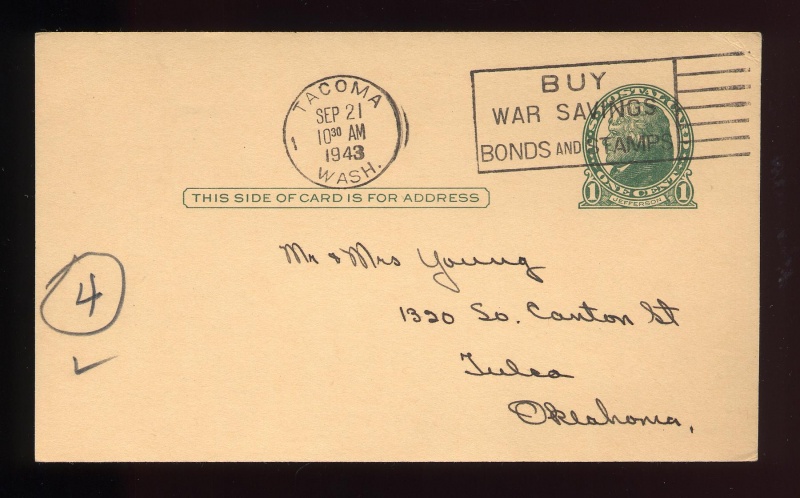 TACOMA
SEP 21
10 30 AM
1943
WASH.
1
BUY
WAR SAVINGS
BONDS AND STAMPS
U.S. POSTAL CARD
1 ONE CENT 1
JEFFERSON
THIS SIDE OF CARD IS FOR ADDRESS
Mr & Mrs Young
1320 So. Canton St
Tulsa
Oklahoma.
4